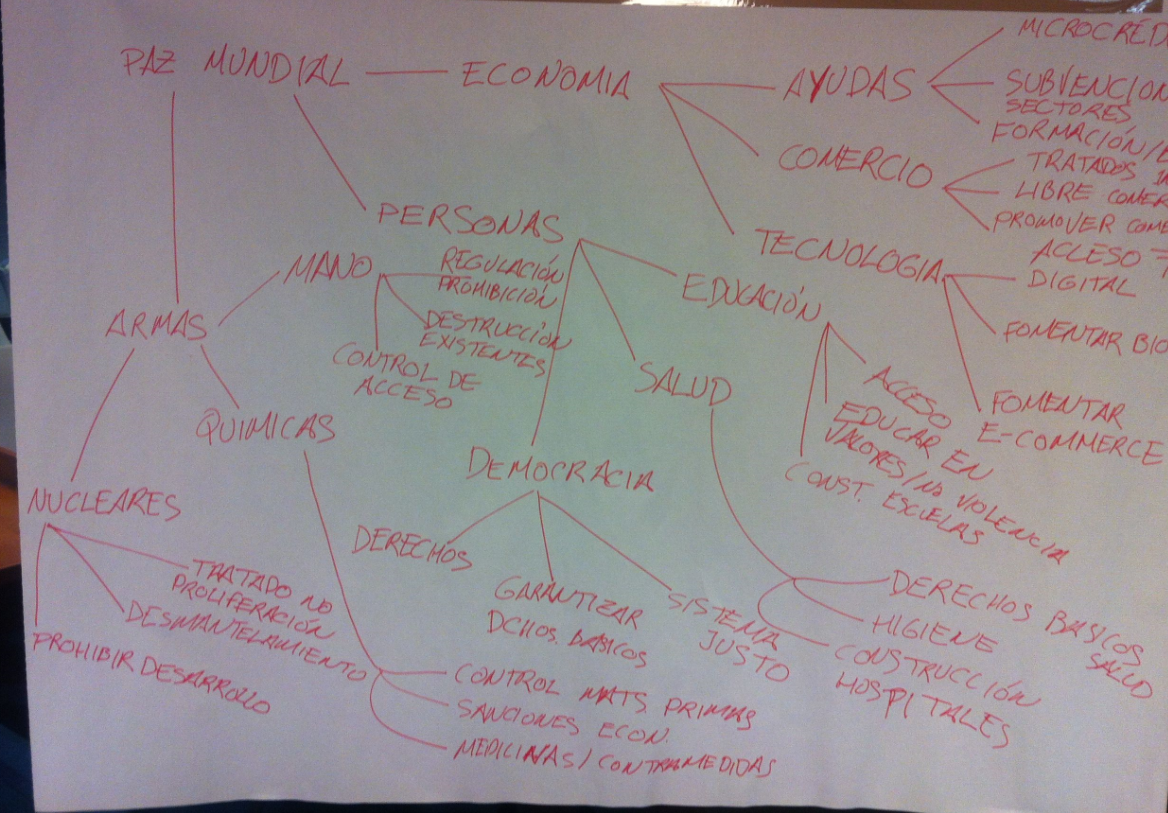 PAZ MUNDIAL
ECONOMIA
AYUDAS
SUBVENCION
SECTORES
FORMACIÓN/
COMERCIO
TRATADOS
LIBRE
PROMOVER
TECNOLOGIA
ACCESO
DIGITAL
FOMENTAR BIO
FOMENTAR
E-COMMERCE
PERSONAS
EDUCACIÓN
ACCESO
EDUCAR EN
VALORES/NO VIOLENCIA
CONST. ESCUELAS
SALUD
DERECHOS BASICOS
SALUD
HIGIENE
CONSTRUCCIÓN
HOSPITALES
DEMOCRACIA
DERECHOS
GARANTIZAR
DCHOS. BASICOS
SISTEMA
JUSTO
ARMAS
MANO
REGULACIÓN
PROHIBICIÓN
DESTRUCCIÓN
EXISTENTES
CONTROL DE
ACCESO
QUIMICAS
CONTROL MATS. PRIMAS
SANCIONES ECON.
MEDICINAS/CONTRAMEDIDAS
NUCLEARES
TRATADO NO
PROLIFERACIÓN
DESMANTELAMIENTO
PROHIBIR DESARROLLO